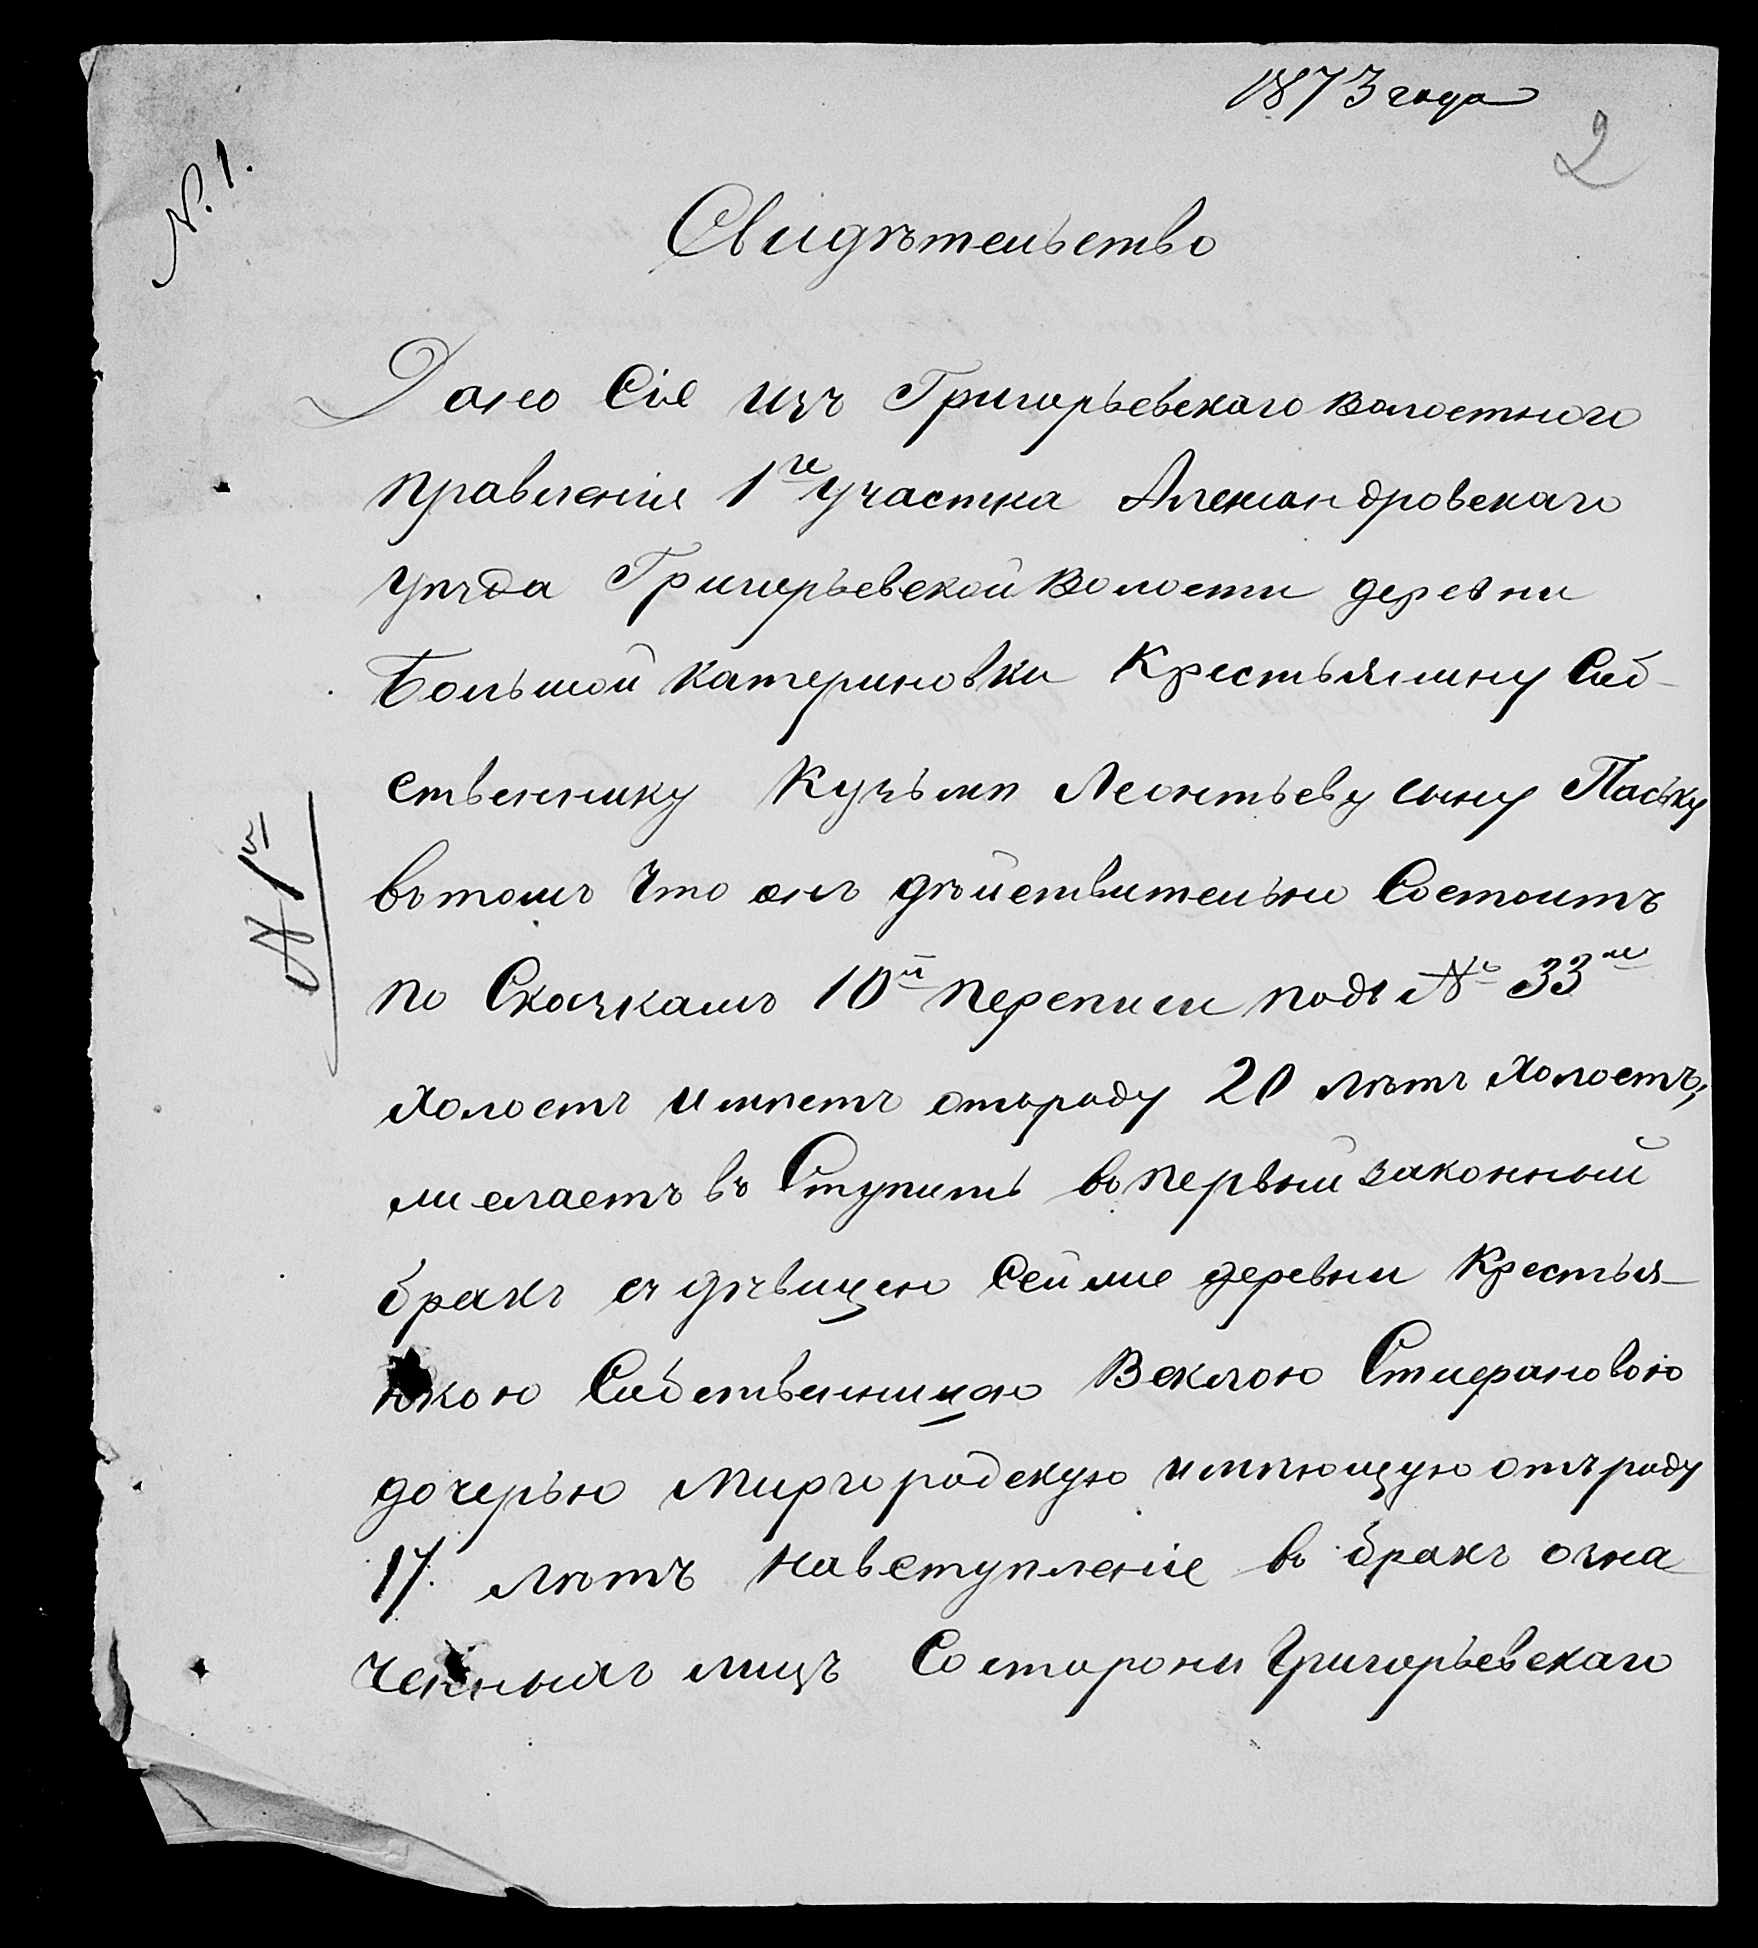 1873 года
2
N. 1.
Свидѣтельство
Дано Сіе изъ Григорьевскаго волостного
правленія 1го участка Александровскаго
уѣзда Григорьевской волости деревни
Большой Катериновки Крестьянину Соб-
ственнику Кузьмѣ Леонтьеву сыну Паську
въ томъ что онъ дѣйствительно Состоитъ
№ 1й
по Скаскамъ 10й переписи подъ № 33м
холостъ имѣетъ отъ роду 20 лѣтъ холостъ,
желаетъ въ Ступить во первый законный
бракъ съ дѣвицею Сей же деревни Крестья-
нкою Собственницою Веклою Стифановою
дочерью Миргородскую имѣющую отъ роду
17. лѣтъ на вступленіе въ бракъ озна
ченныхъ лицъ Со стороны Григорьевскаго